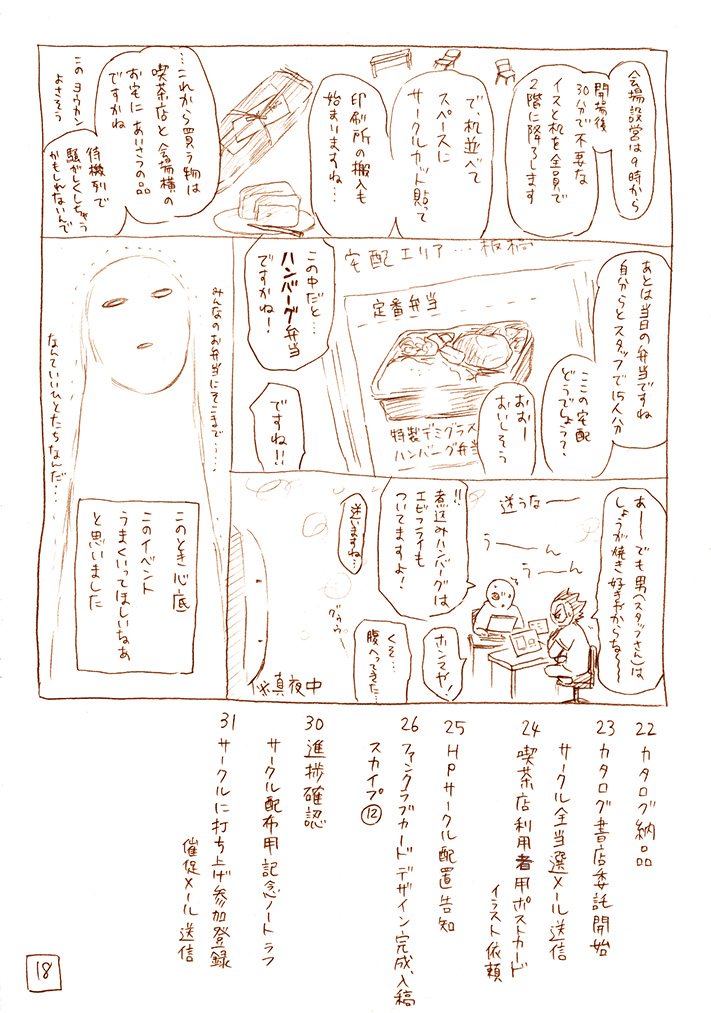 会場設営は9時から
開場後
30分で不要な
イスと机を全員で
2階に降ろします
で、机並べて
スペースに
サークルカット貼って
印刷所の搬入も
始まりますね…
…これから買う物は
喫茶店と会場横の
お宅にあいさつの品
ですかね
この ヨウカン
よさそう
待機列で
騒がしくしちゃう
かもしれないんで
あとは当日の弁当ですね
自分らとスタッフで15人分
ここの宅配
どうでしょう?
宅配エリア…板橋
定番弁当
特製デミグラス
ハンバーグ弁当
おおー
おいしそう
この中だと…
ハンバーグ弁当
ですかね!
ですね!!
みんなのお弁当にそこまで……
なんていいひとたちなんだ…
このとき心底
このイベント
うまくいってほしいなあ
と思いました
あーでも男(スタッフさん)は
しょうが焼き好きやからな〜〜
迷うなー
うーーん
うーーん
!!
煮込みハンバーグは
エビフライも
ついてますよ!
ホンマや!
迷いますね…
グゥゥ〜
くそ…
腹へってきた…
※真夜中
22 カタログ納品
23 カタログ書店委託開始
サークル全当選メール送信
24 喫茶店利用者用ポストカード
イラスト依頼
25 HPサークル配置告知
26 ファンクラブカードデザイン完成、入稿
スカイプ⑫
30 進捗確認
サークル配布用記念ノートラフ
31 サークルに打ち上げ参加登録
催促メール送信
18